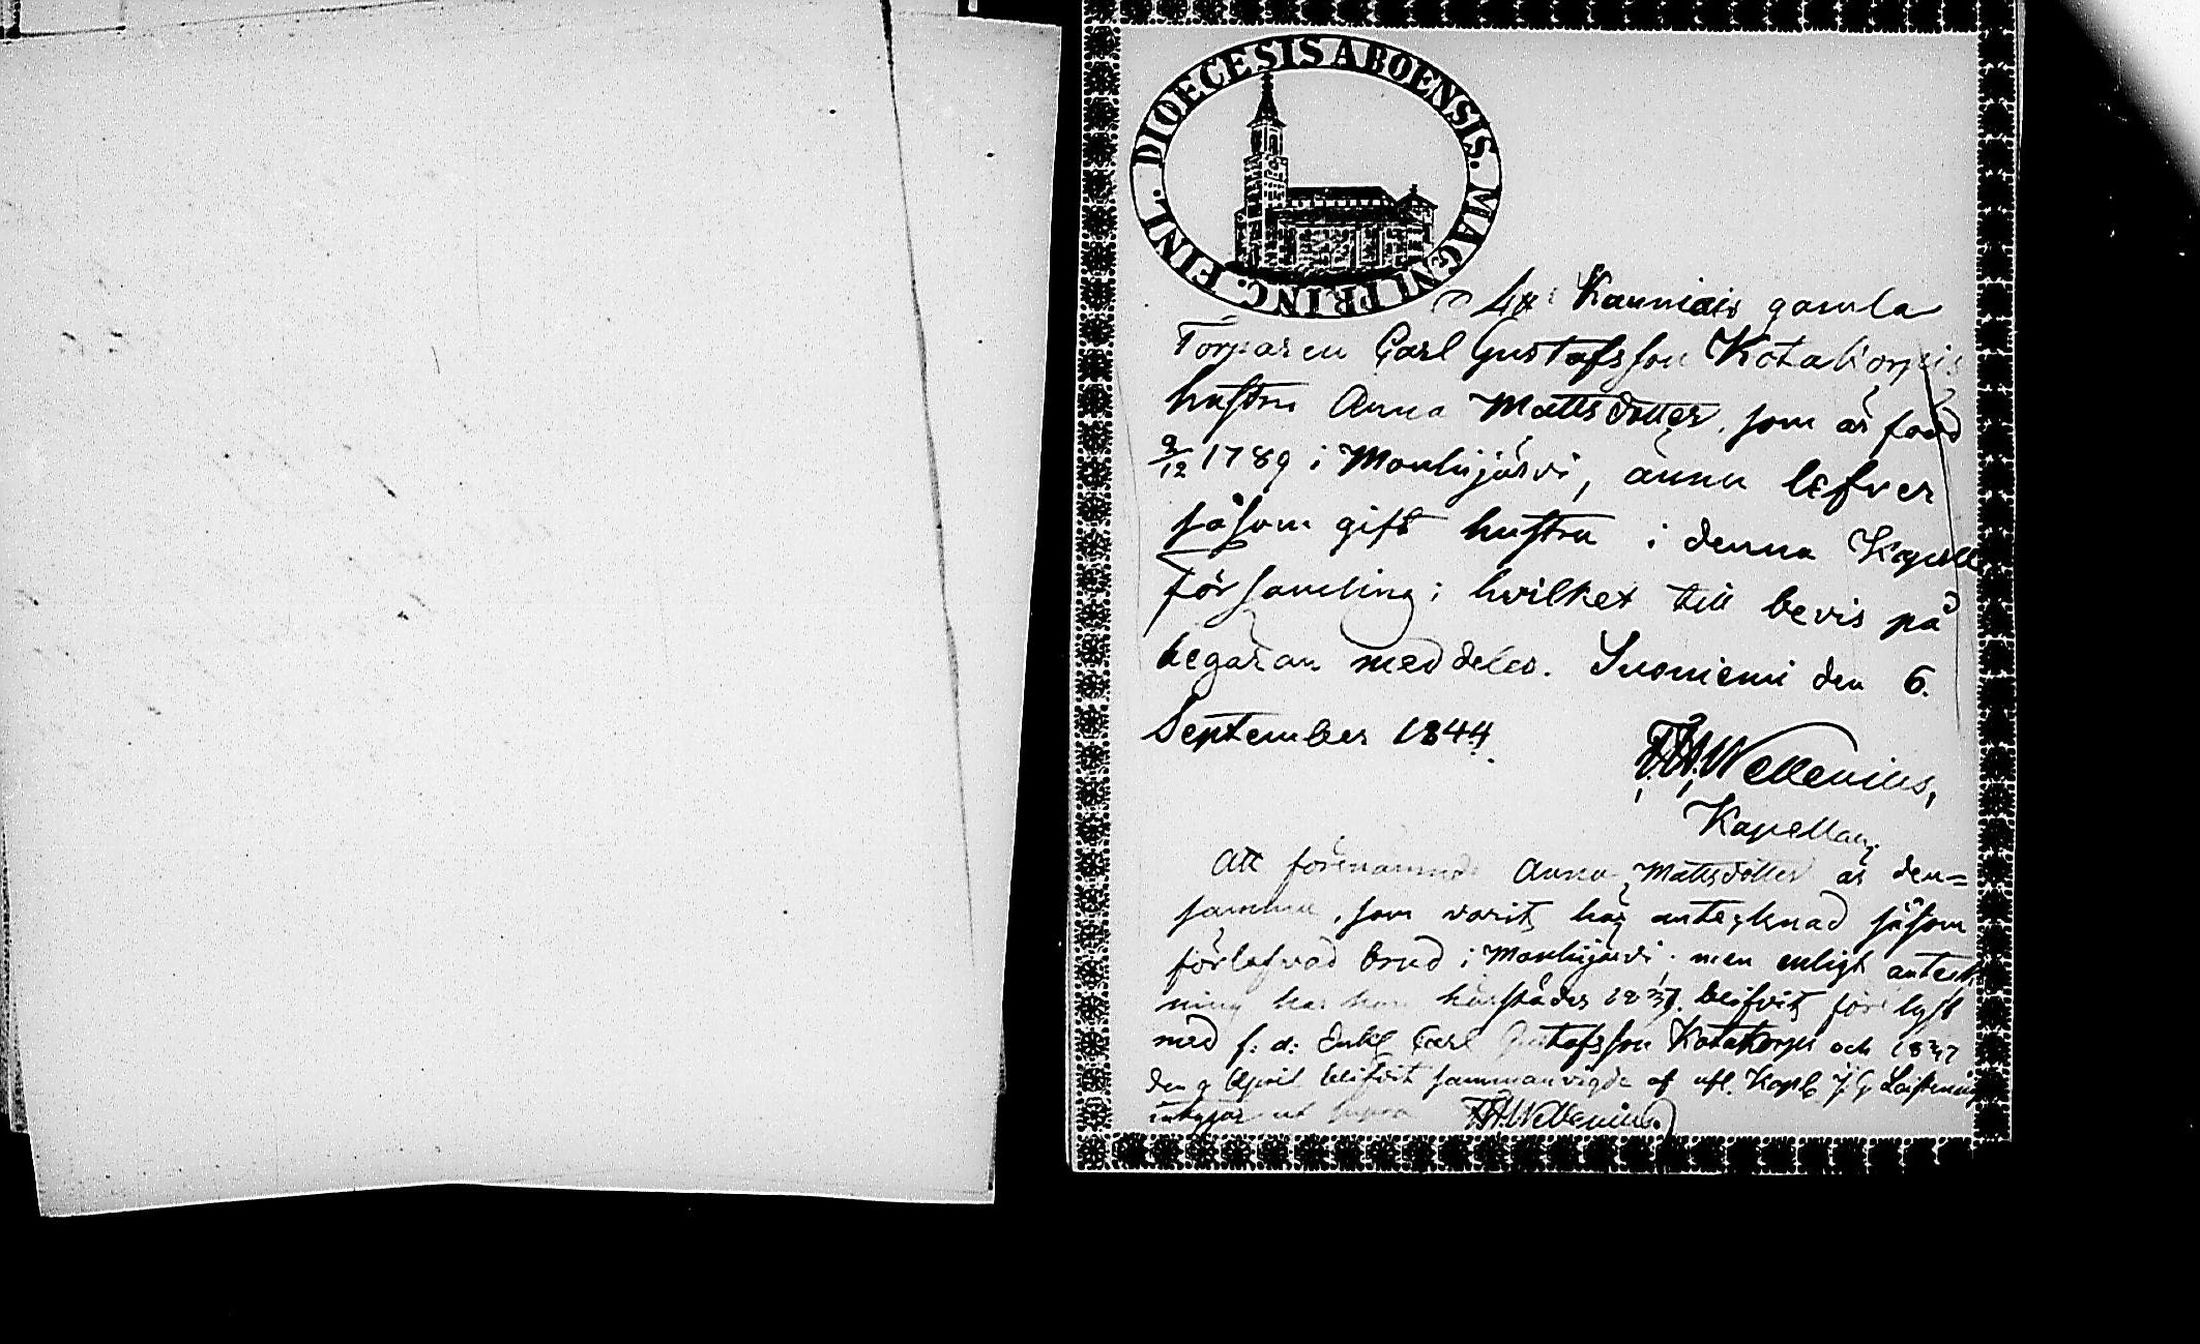 DIOECESIS ABOENSIS. MAGNI PRINC. FINL.
Kauniais gamla
Torparen Carl Gustafsson Kotakorpis
hustru Anna Mattsdotter, som är född
9/12 1789 i Mouhijärvi, ännu lefver
såsom gift hustru i denna Kapell
församling; hvilket till bevis på
begäran meddeles. Suoniemi den 6.
September 1844.
Wellenius,
Kapellan.
Att förenämnde Anna Mattsdotter är den=
samma, som varit här antecknad såsom
förlofvad brud i Mouhijärvi, men enligt anteck
ning har hon härstädes blifvit lyst
med f: d: Enkl Carl Gustafsson Kotakorpi och
den 9 April blifvit sammanvigde af
intygar ut supra Wellenius.